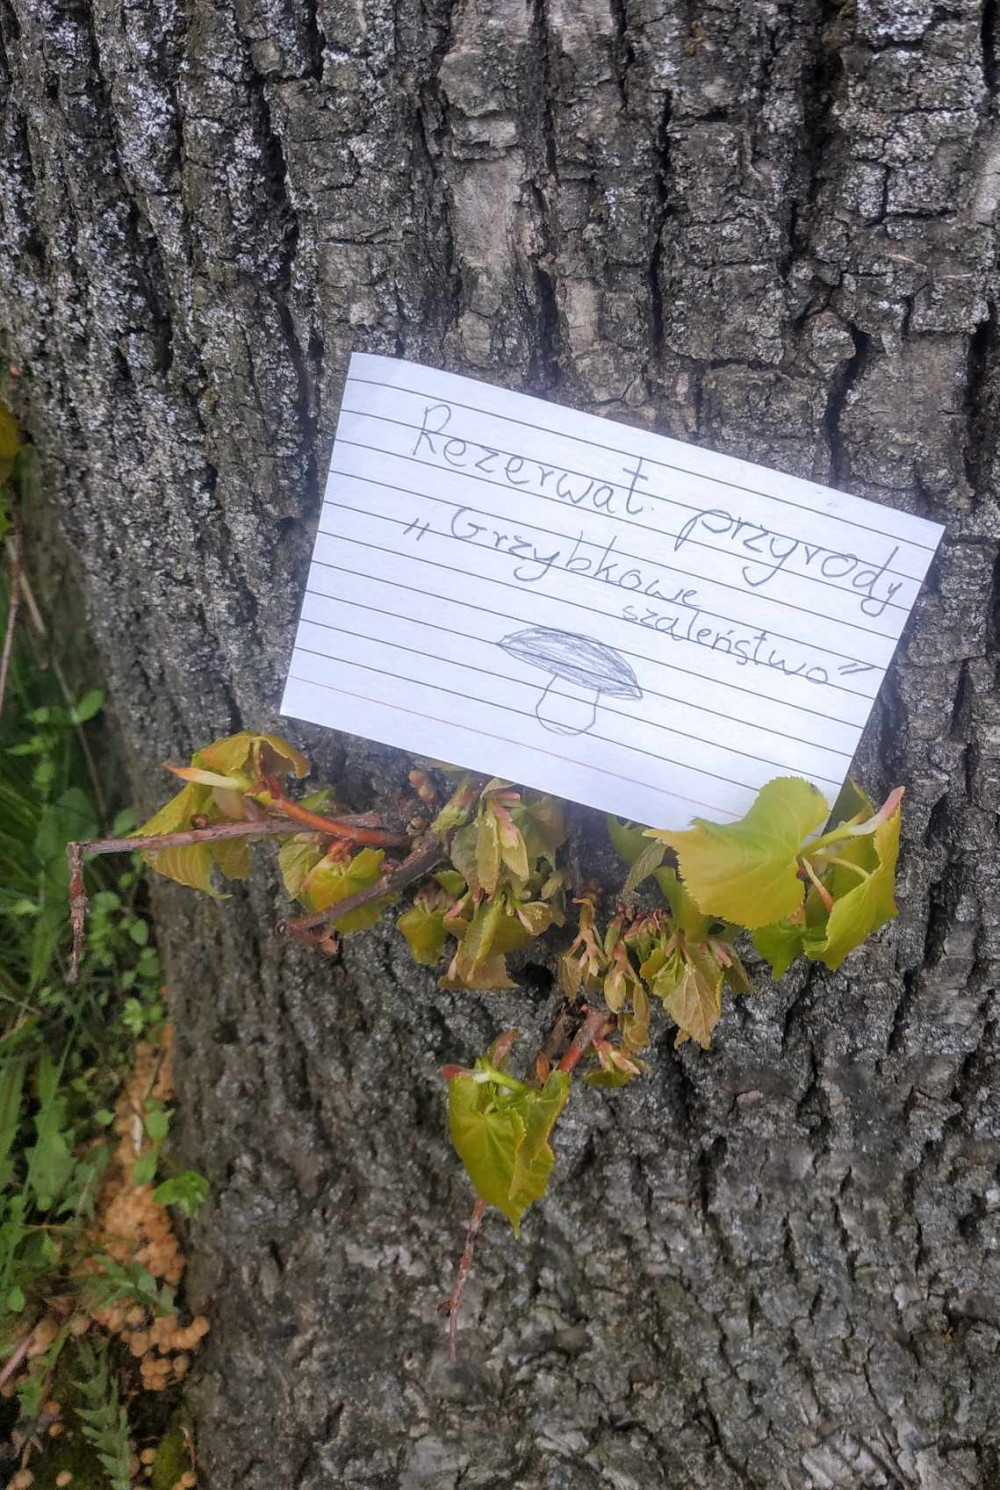 Rezerwat przyrody
„Grzybkowe
szaleństwo”